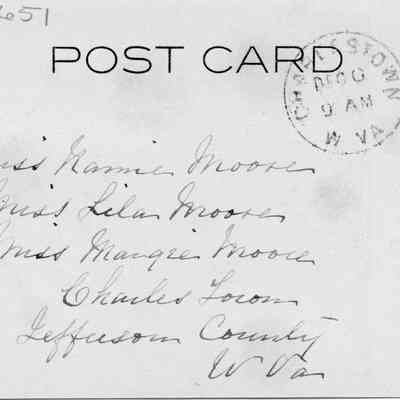 651
POST CARD
CHARLESTOWN
DEC
9 AM
W VA
Miss Nannie Moore
Miss Lila Moore
Miss Margie Moore
Charles Town
Jefferson County
W Va